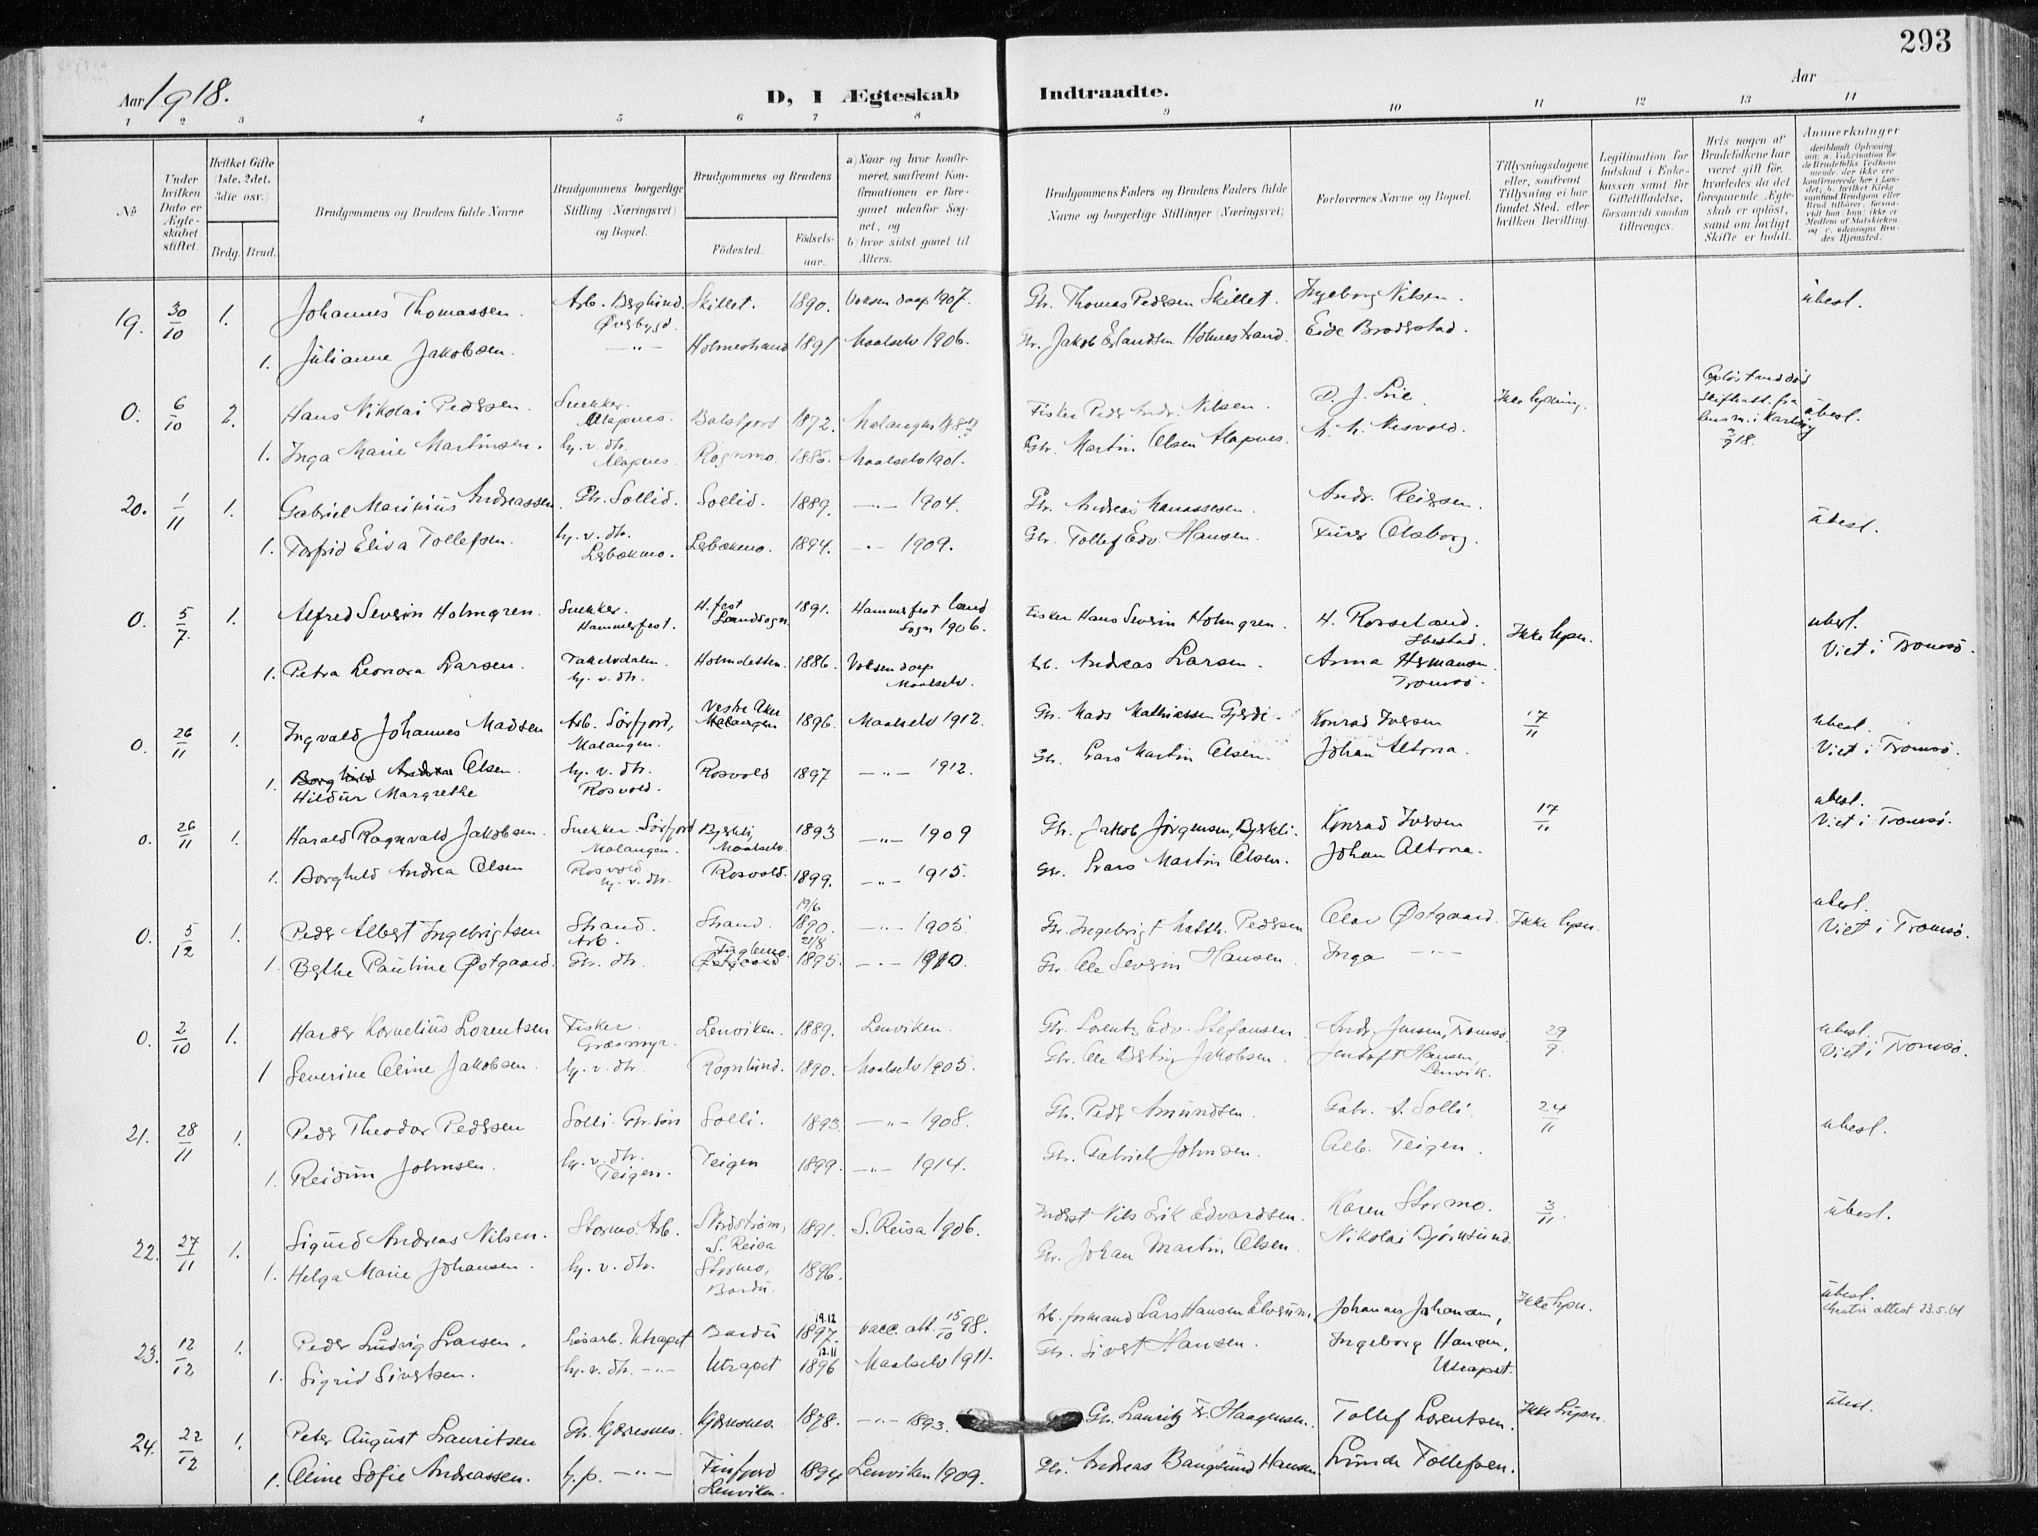 293
Aar 1918.
D, I Ægteskab Indtraadte.
Aar
1 2 3 4 5 6 7 8 9 10 11 12 13 14
No
Under hvilken Dato er Ægteskabet stiftet.
Hvilket Gifte (1ste, 2det, 3die osv.)
Brdg. Brud.
Brudgommens og Brudens fulde Navne
Brudgommens borgerlige Stilling (Næringsvei) og Bopæl.
Brudgommens og Brudens
Fødested. Fødselsaar.
a) Naar og hvor konfirmeret, saafremt Konfirmationen er foregaaet udenfor Sognet, og
b) hvor sidst gaaet til Alters.
Brudgommens Faders og Brudens Faders fulde Navne og borgerlige Stillinger (Næringsvei)
Forlovernes Navne og Bopæl.
Tillysningsdagene eller, saafremt Tillysning ei har fundet Sted, efter hvilken Bevilling.
Legitimation for Indskud i Enkekassen samt for Giftetilladelse, forsaavidt saadan tiltrænges.
Hvis nogen af Brudefolkene har været gift før, hvorledes da det foregaaende Ægteskab er opløst, samt om lovligt Skifte er holdt.
Anmerkninger
19. 30/10 1. Johannes Thomassen. Arb. Berglund. Øverbygd. Skillet. 1890. Voksen daap 1907. Gbr. Thomas Pedersen Skillet. Ingeborg Nilsen. ubesl.
1. Julianne Jakobsen. —"— Holmestrand 1891 Maalselv 1906. Gbr. Jakob Erlandsen Holmestrand. Eide Brodrstad.
0. 6/10 2. Hans Nikolai Pedersen. Snekker. Alapnes. Balsfjord 1872. Malangen Fisker Peder Andr. Nilsen. O. J. Lie. Ikke lysning. ubesl.
1. Inga Marie Martinsen. hj. v. dtr. Alapnes. Rognmo. 1886. Maalselv 1901. Gbr. Martin Olsen Alapnes.
20. 1/11 1. Gabriel Marinius Andreassen. Gbr. Sollid. Sollid. 1889. —"— 1904. Gbr. Andreas Manassesen. Andr. Reiersen. ubesl.
1. Torfrid Eliva Tollefsen. hj. v. dtr. Løbækmo. Løbækmo. 1894. —"— 1909. Gbr. Tollef Edv. Hansen. Olsborg.
0. 5/7. 1. Alfred Severin Holmgren. Snekker. Hammerfest. H.fest Landsogn 1891. Hammerfest land Sogn 1906. Fisker Hans Severin Holmgren. H. Rosseland. Ibestad. Ikke lysn. ubesl. Viet i Tromsø.
1. Petra Leonora Larsen. Takelvdalen. hj. v. dtr. 1886. Voksen daap Maalselv. Arb. Andreas Larsen. Anna Hermansen. Tromsø.
0. 26/11 1. Ingvald Johannes Madsen Arb. Sørfjord, Malangen. Vestre Aker Malangen 1896. Maalselv 1912. Gbr. Mads Mathiassen Konrad Iversen 17/11 ubesl. Viet i Tromsø.
1. Borghild Andrea Olsen. Hildur Margrethe hj. v. dtr. Rosvold. Rosvold 1897 —"— 1912. Gbr. Lars Martin Olsen. Johan Altona.
0. 26/11 1. Harald Ragnvald Jakobsen. Snekker Sørfjord Malangen. Bjerkli, Maalselv 1893 —"— 1909 Gbr. Jakob Jørgensen, Bjerkli. Konrad Iversen 17/11 ubesl. Viet i Tromsø.
1. Borghild Andrea Olsen Rosvold hj. v. dtr. Rosvold. 1899. —"— 1915. Gbr. Lars Martin Olsen. Johan Altona.
0. 5/12 1. Peder Albert Ingebrigtsen Strand. Arb. Strand. 19/6 1890. —"— 1905 Gbr. Ingebrigt Matth. Pedersen Olav Østgaard. Ikke lysn. ubesl. Viet i Tromsø.
1. Berthe Pauline Østgaard. Gbr. dtr. Fuglemo. Østgaard 21/8 1895. —"— 1910. Gbr. Ole Severin Hansen Inga —"—
0. 2/10 1. Harder Kornelius Lorentsen Fisker. Græsmyr. Lenviken. 1889. Lenviken. Gbr. Lorentz Edv. Stefansen. Andr. Jensen, Tromsø. 29/9. ubesl. Viet i Tromsø.
1 Severine Oline Jakobsen. hj. v. dtr. Rognlund. 1890. Maalselv 1905. Gbr. Ole Jakobsen. Jentoft Hansen, Lenvik.
21. 28/11 1. Peder Theodor Pedersen Solli. Gbr. søn Solli. 1893. —"— 1908. Gbr. Peder Amundsen. Gabr. A. Solli. 24/11 ubesl.
1. Reidun Johnsen. hj. v. dtr. Teigen. Teigen 1899. —"— 1914. Gbr. Gabriel Johnsen. Alb. Teigen.
22. 27/11 1. Sigurd Andreas Nilsen. Stormo. Arb. Storstrøm, S. Reisa 1891. S. Reisa 1906. Inderst Nils Erik Edvardsen. Karen Stormo. 3/11. ubesl.
1. Helga Marie Johansen. hj. v. dtr. Stormo, Bardu. 1896. Gbr. Johan Martin Olsen. Nikolai Bjørnsund.
23. 12/12 1. Peder Ludvig Larsen. Løsarb. Utrapet Bardu 19.12 1897. vacc. att. 15/10 98. Arb. formand Lars Hansen Elverum. Johannes Johansen, Ikke lysn. ubesl. 23.5.61
1. Sigrid Sivertsen. hj. v. dtr. —"— Utrapet 12.11 1896 Maalselv 1911. Gbr. Sivert Hansen. Ingeborg Hansen, Utrapet.
24. 22/12 1. Peter August Lauritsen Gbr. Kjæresnes. Kjæresnes. 1878. —"— 1893. Gbr. Lauritz Fr. Haagensen. Tollef Lorentsen. Ikke lysn. ubesl.
1. Oline Sofie Andreassen. hj.p. —"— Finfjord Lenviken. 1894 Lenviken 1909. Gbr. Andreas Bangsund Hansen. Tollefsen.